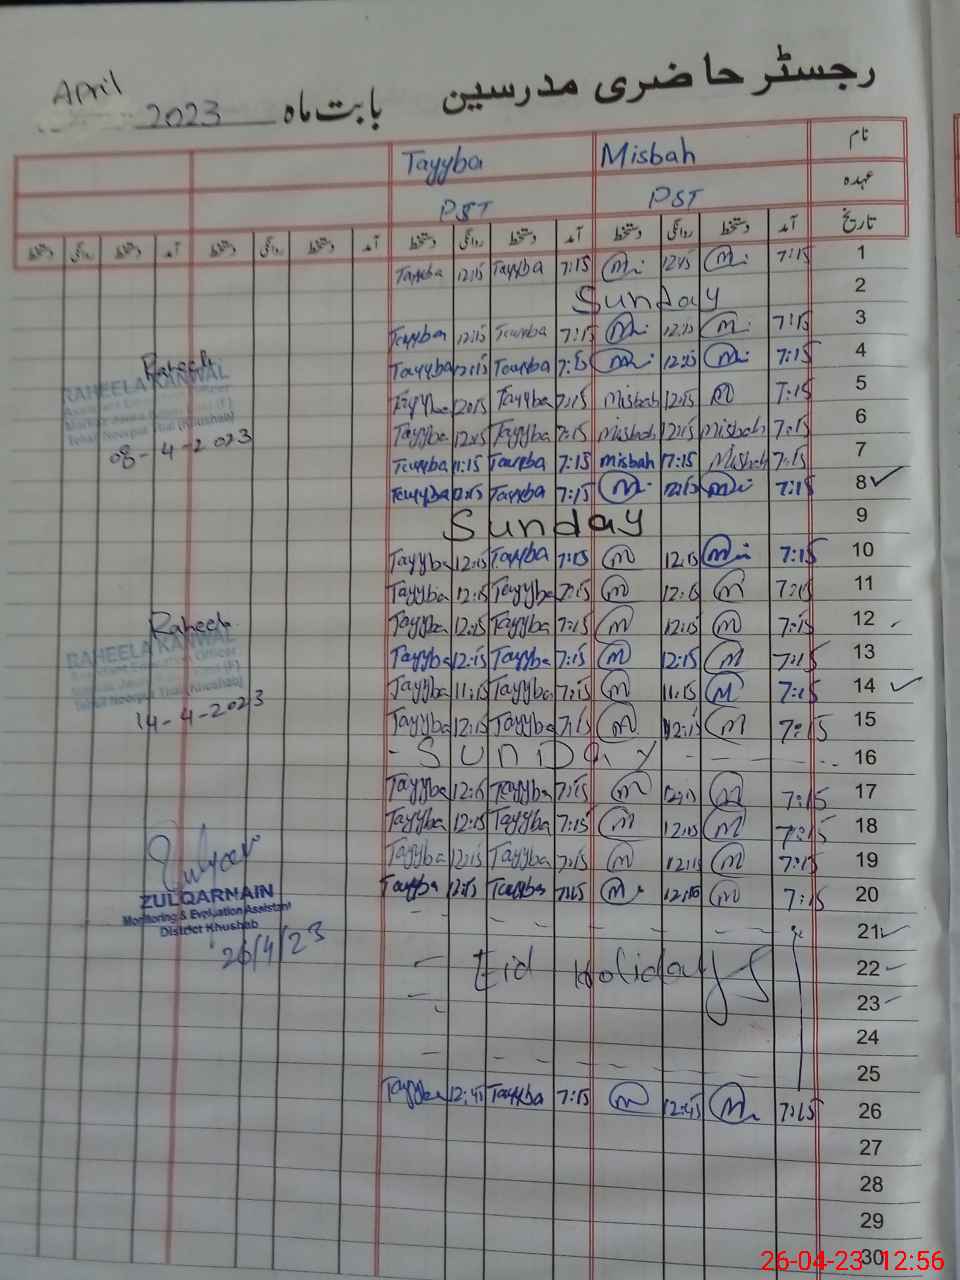 رجسٹر حاضری مدرسین بابت ماہ April 2023
نام Misbah Tayyba
عہدہ PST PST
تاریخ آمد دستخط روانگی دستخط آمد دستخط روانگی دستخط آمد دستخط روانگی دستخط آمد دستخط روانگی دستخط
Tayyba 12:15 Tayyba 7:15 12:15 7:15 1
Sunday 2
Tayyba 12:15 Tayyba 7:15 7:15 3
Tayyba 12:15 Tayyba 7:15 7:15 4
Tayyba 12:15 Tayyba 7:15 Misbah 12:15 7:15 5
Tayyba 12:15 Tayyba 7:15 Misbah 12:15 Misbah 7:15 6
Tayyba 11:15 Tayyba 7:15 Misbah Misbah 7:15 7
Tayyba 12:15 Tayyba 7:15 12:15 7:15 8
Sunday 9
Tayyba 12:15 Tayyba 7:15 12:15 7:15 10
Tayyba 12:15 Tayyba 7:15 12:15 7:15 11
Tayyba 12:15 Tayyba 7:15 12:15 7:15 12
Tayyba 12:15 Tayyba 7:15 12:15 7:15 13
Tayyba 11:15 Tayyba 7:15 11:15 7:15 14
Tayyba 12:15 Tayyba 7:15 12:15 7:15 15
SUNDay 16
Tayyba 12:15 Tayyba 7:15 7:15 17
Tayyba 12:15 Tayyba 7:15 12:15 7:15 18
Tayyba 12:15 Tayyba 7:15 12:15 7:15 19
Tayyba 12:15 Tayyba 7:15 12:15 7:15 20
21
Eid Holidays 22
23
24
25
Tayyba 12:45 Tayyba 7:15 12:45 7:15 26
27
28
29
30
Raheela
RAHEELA KANWAL
Tehsil Noorpur Thal (Khushab)
08-4-2023
Raheela
RAHEELA KANWAL
Assistant Education Officer
Tehsil Noorpur Thal (Khushab)
14-4-2023
ZULQARNAIN
Monitoring & Evaluation Assistant
District Khushab
26/4/23
26-04-23 12:56